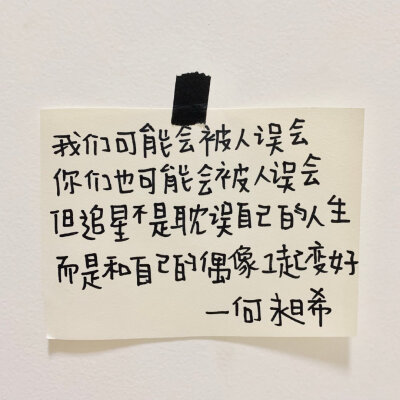 我们可能会被人误会
你们也可能会被人误会
但追星不是耽误自己的人生
而是和自己的偶像1起变好
—何昶希